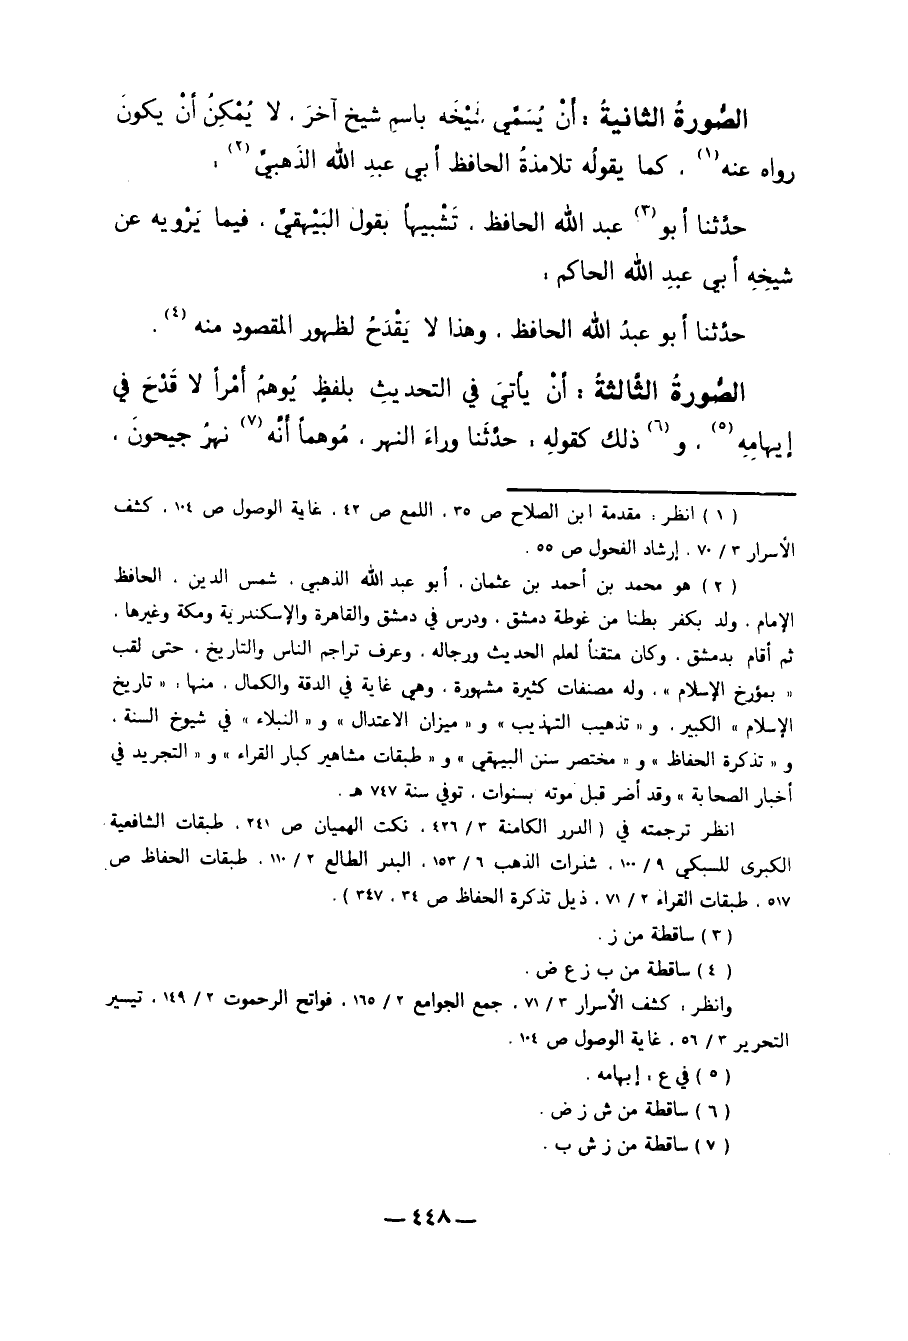 الصُّورةُ الثانيةُ : أنْ يُسَمَّي شَيْخَه باسمِ شيخ آخرَ ، لا يُمْكِنُ أنْ يكونَ
رواه عنه(١) ، كما يقولُه تلامذةُ الحافظ أبي عبدِ الله الذَهبيَّ(٢) :
حدَّثنا أبو(٣) عبد الله الحافظ ، تَشْبيهاً بقول البَيْهقيَّ ، فيما يَرْويه عن
شيخِهِ أبي عبدِ الله الحاكم :
حدَّثنا أبو عبدُ الله الحافظ ، وهذا لا يَقْدَحُ لظهور المقصودِ منه(٤) .
الصُّورةُ الثَّالثةُ : أنْ يأتيَ في التحديثِ بلفظٍ يُوهمُ أمْراً لا قَدْحَ في
إيهامِهِ(٥) ، و(٦) ذلك كقولِهِ : حدَّثَنا وراءَ النهر ، مُوهماً أنَّه(٧) نهرُ جيحونَ ،
( ١ ) انظر : مقدمة ابن الصلاح ص ٣٥ ، اللمع ص ٤٢ ، غاية الوصول ص ١٠٤ ، كشف
الأسرار ٣ / ٧٠ ، إرشاد الفحول ص ٥٥ .
( ٢ ) هو محمد بن أحمد بن عثمان ، أبو عبد الله الذهبي ، شمس الدين ، الحافظ
الإمام ، ولد بكفر بطنا من غوطة دمشق ، ودرس في دمشق والقاهرة والإسكندرية ومكة وغيرها ،
ثم أقام بدمشق ، وكان متقناً لعلم الحديث ورجاله ، وعرف تراجم الناس والتاريخ ، حتى لقب
« بمؤرخ الإسلام » ، وله مصنفات كثيرة مشهورة ، وهي غاية في الدقة والكمال ، منها : « تاريخ
الإسلام » الكبير ، و « تذهيب التهذيب » و « ميزان الاعتدال » و « النبلاء » في شيوخ السنة ،
و « تذكرة الحفاظ » و « مختصر سنن البيهقي » و « طبقات مشاهير كبار القراء » و « التجريد في
أخبار الصحابة » وقد أضر قبل موته بسنوات ، توفي سنة ٧٤٧ هـ .
انظر ترجمته في ( الدرر الكامنة ٣ / ٤٢٦ ، نكت الهميان ص ٢٤١ ، طبقات الشافعية
الكبرى للسبكي ٩ / ١٠٠ ، شذرات الذهب ٦ / ١٥٣ ، البدر الطالع ٢ / ١١٠ ، طبقات الحفاظ ص
٥١٧ ، طبقات القراء ٢ / ٧١ ، ذيل تذكرة الحفاظ ص ٣٤ ، ٣٤٧ ) .
( ٣ ) ساقطة من ز .
( ٤ ) ساقطة من ب ز ع ض .
وانظر : كشف الأسرار ٣ / ٧١ ، جمع الجوامع ٢ / ١٦٥ ، فواتح الرحموت ٢ / ١٤٩ ، تيسير
التحرير ٣ / ٥٦ ، غاية الوصول ص ١٠٤ .
( ٥ ) في ع : إبهامه .
( ٦ ) ساقطة من ش ز ض .
( ٧ ) ساقطة من ز ش ب .
— ٤٤٨ —